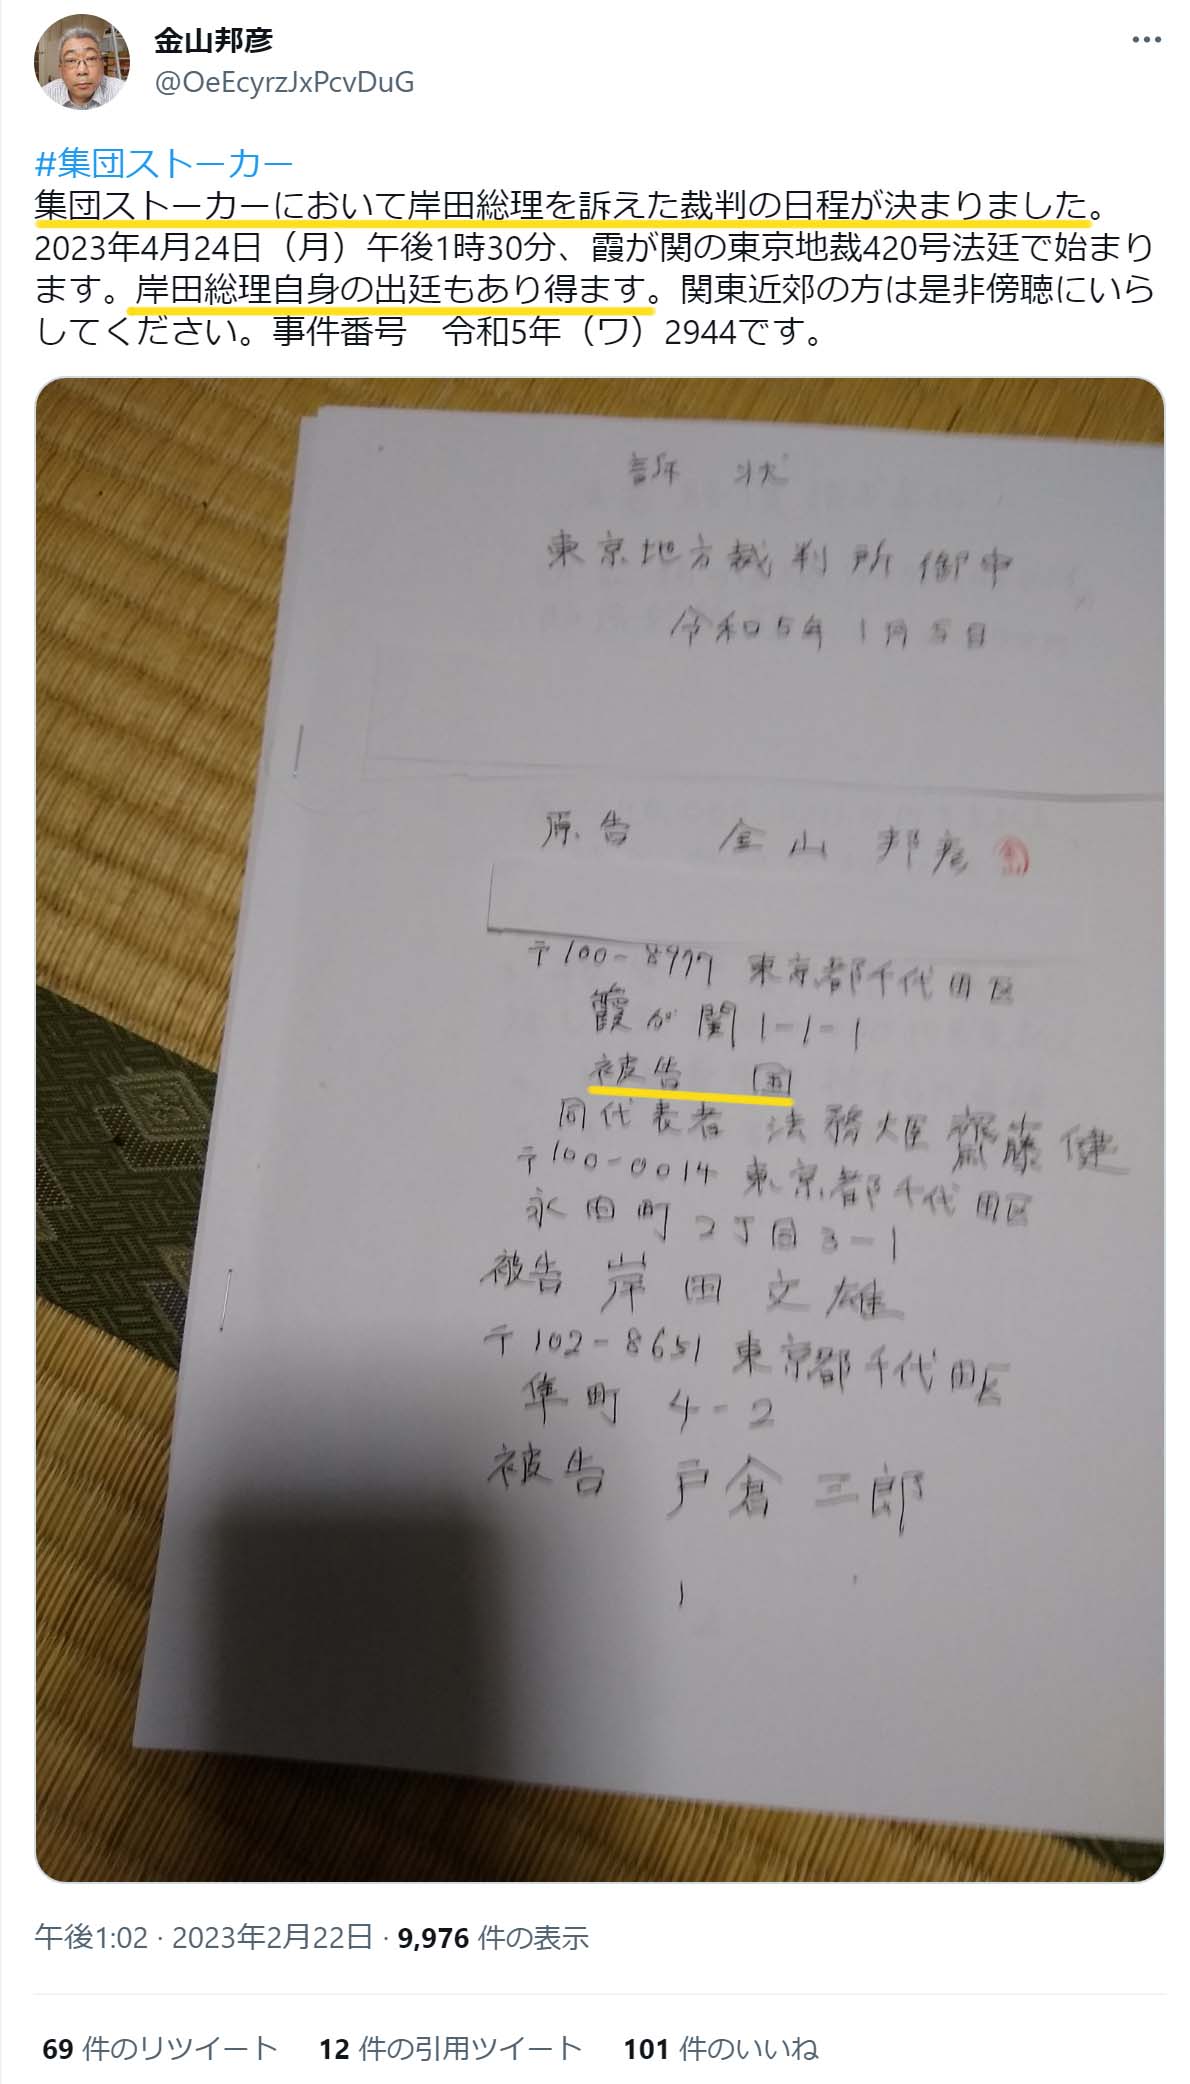 金山邦彦
@OeEcyrzJxPcvDuG
#集団ストーカー
集団ストーカーにおいて岸田総理を訴えた裁判の日程が決まりました。
2023年4月24日（月）午後1時30分、霞が関の東京地裁420号法廷で始まり
ます。岸田総理自身の出廷もあり得ます。関東近郊の方は是非傍聴にいら
してください。事件番号　令和5年（ワ）2944です。
訴 状
東京地方裁判所御中
令和5年1月5日
原告　金山 邦彦
〒100-8977 東京都千代田区
霞が関1-1-1
被告　国
同代表者 法務大臣 齋藤健
〒100-0014 東京都千代田区
永田町2丁目3-1
被告 岸田 文雄
〒102-8651 東京都千代田区
隼町 4-2
被告 戸倉三郎
1
午後1:02 · 2023年2月22日 · 9,976 件の表示
69 件のリツイート 12 件の引用ツイート 101 件のいいね